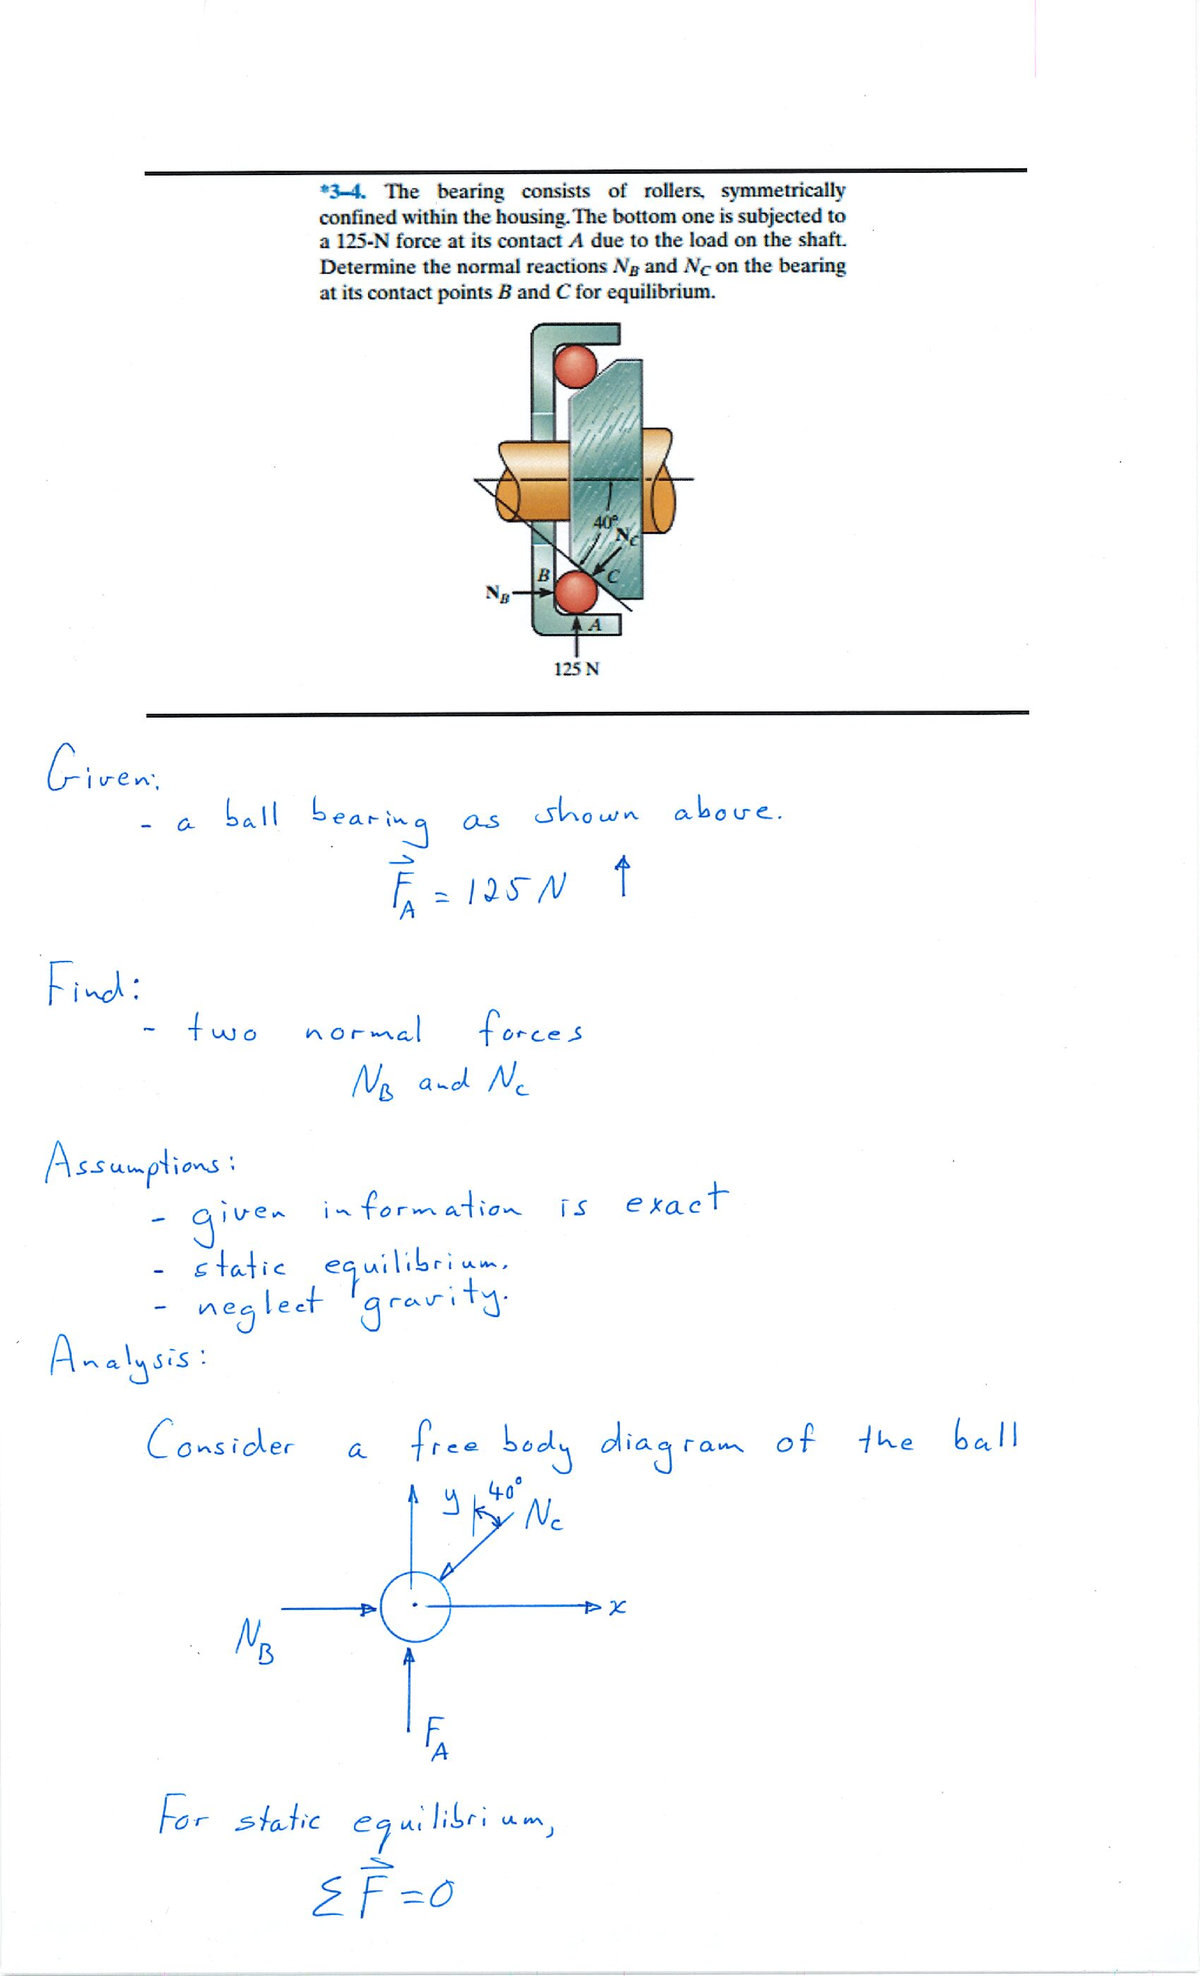 *3–4. The bearing consists of rollers, symmetrically
confined within the housing. The bottom one is subjected to
a 125-N force at its contact A due to the load on the shaft.
Determine the normal reactions N_B and N_C on the bearing
at its contact points B and C for equilibrium.
40°
N_C
B
C
N_B
A
125 N
Given:
- a ball bearing as shown above.
F_A = 125 N ↑
Find:
- two normal forces
N_B and N_C
Assumptions:
- given information is exact
- static equilibrium.
- neglect gravity.
Analysis:
Consider a free body diagram of the ball
y 40° N_C
x
N_B
F_A
For static equilibrium,
Σ F⃗ = 0